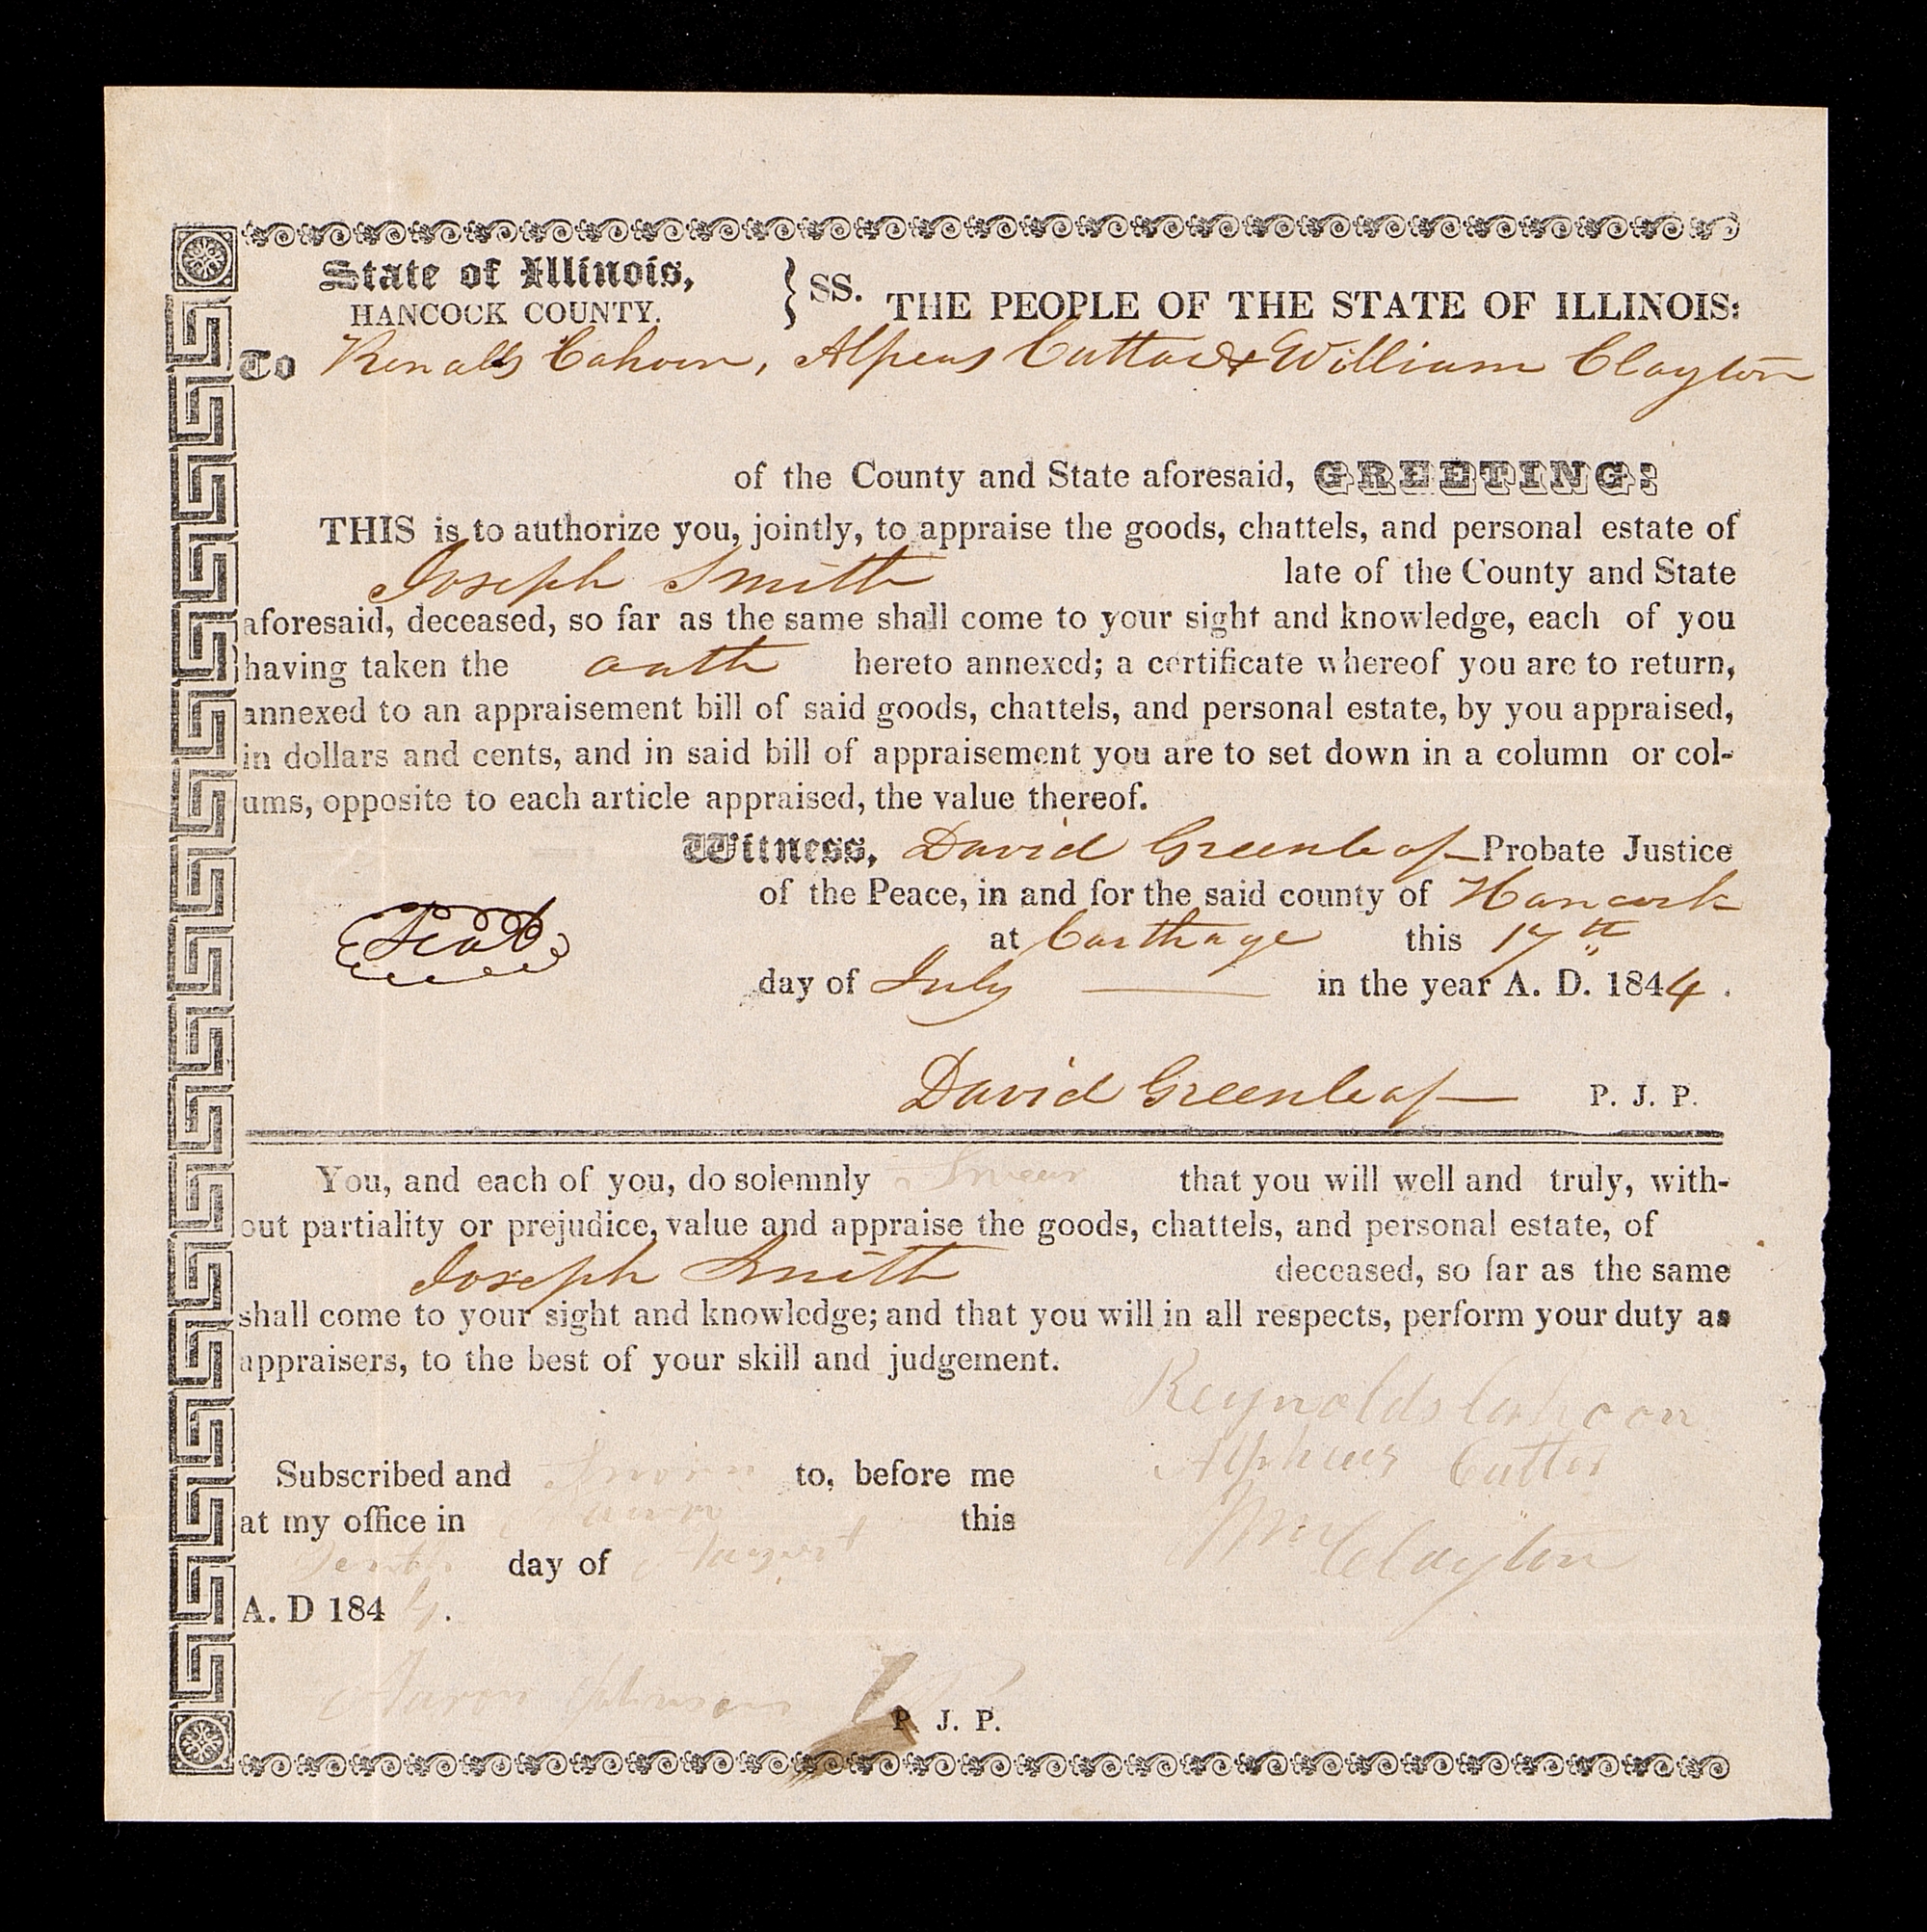 State of Illinois, } SS. THE PEOPLE OF THE STATE OF ILLINOIS:
HANCOCK COUNTY.
To Renalds Cahoon, Alpeus Cuttar & William Clayton
of the County and State aforesaid, GREETING:
THIS is to authorize you, jointly, to appraise the goods, chattels, and personal estate of
Joseph Smith late of the County and State
aforesaid, deceased, so far as the same shall come to your sight and knowledge, each of you
having taken the oath hereto annexed; a certificate whereof you are to return,
annexed to an appraisement bill of said goods, chattels, and personal estate, by you appraised,
in dollars and cents, and in said bill of appraisement you are to set down in a column or col-
ums, opposite to each article appraised, the value thereof.
Witness, David Greenleaf Probate Justice
of the Peace, in and for the said county of Hancock
Seal at Carthage this 17th
day of July in the year A. D. 1844.
David Greenleaf P. J. P.
You, and each of you, do solemnly Swear that you will well and truly, with-
out partiality or prejudice, value and appraise the goods, chattels, and personal estate, of
Joseph Smith deceased, so far as the same
shall come to your sight and knowledge; and that you will in all respects, perform your duty as
appraisers, to the best of your skill and judgement.
Reynolds Cahoon
Alpheus Cutler
Wm Clayton
Subscribed and Sworn to, before me
at my office in this
Tenth day of August
A. D 1844.
Aaron Johnson
P. J. P.